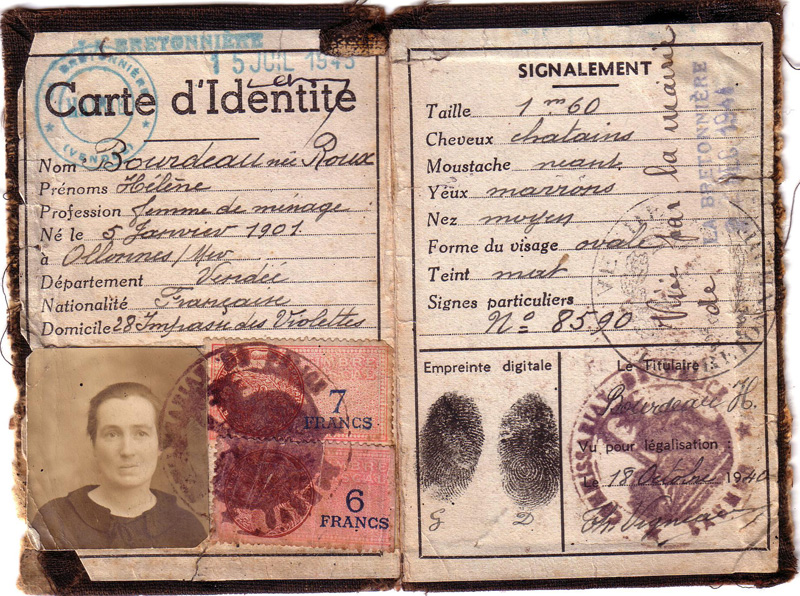 LA BRETONNIÈRE
15 JUIL 1943
BRETONNIÈRE
(VENDÉE)
Carte d'Identité
Nom Bourdeau née Roux
Prénoms Hélène
Profession femme de ménage
Né le 5 Janvier 1901
à Ollonnes s/Mer
Département Vendée
Nationalité Française
Domicile 28 Impasse des Violettes
7
FRANCS
6
FRANCS
SIGNALEMENT
Taille 1m60
Cheveux chatains
Moustache néant
Yeux marrons
Nez moyen
Forme du visage ovale
Teint mat
Signes particuliers
No 8590
par la mairie
de
LA BRETONNIÈRE
Empreinte digitale
G D
Le Titulaire
Bourdeau H.
Vu pour légalisation :
Le 18 Octobre 1940